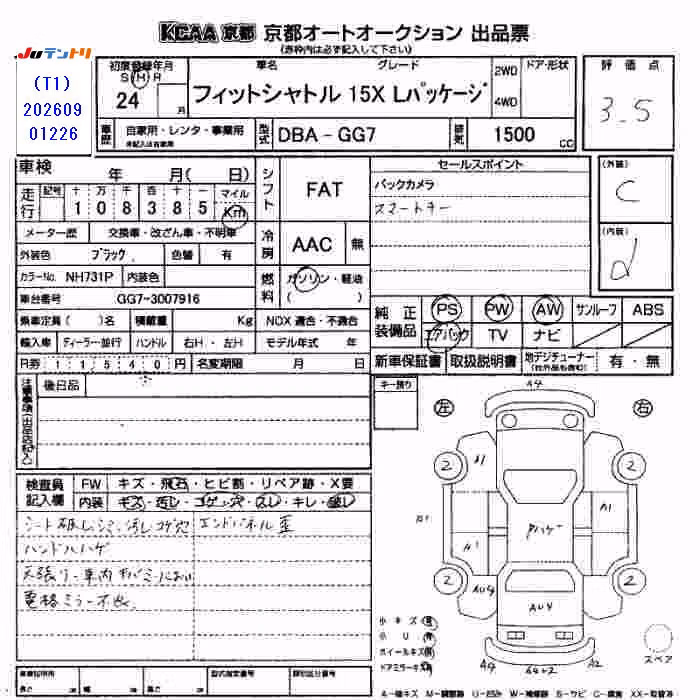 KCAA 京都 京都オートオークション 出品票
(赤枠内は必ず記入して下さい)
JUテントリ
(T1)
202609
01226
初度登録年月
S H R
24
月
車名
グレード
フィットシャトル 15X Lパッケージ
2WD
4WD
ドア・形状
評価点
3.5
車歴
自家用・レンタ・事業用
未記入は自家用
型式
DBA-GG7
排気
1500
CC
車検
年 月( 日)
シフト
FAT
セールスポイント
バックカメラ
スマートキー
(外装)
C
(内装)
d
走行
記号
十 万 千 百 十 一
1 0 8 3 8 5
マイル
Km
メーター歴
交換車・改ざん車・不明車
外装色
ブラック
色替
有
冷房
AAC
無
カラーNo.
NH731P
内装色
燃料
ガソリン・軽油
( )
車台番号
GG7-3007916
純正装備品
PS
PW
AW
サンルーフ
ABS
エアバック
TV
ナビ
乗車定員
( )名
積載量
Kg
NOX 適合・不適合
輸入車
ディーラー・並行
ハンドル
右H・左H
モデル年式
年
新車保証書
取扱説明書
地デジチューナー
(社外品も含む)
有・無
R券
1 1 5 4 0 円
名変期限
月 日
注意事項(出品店記入)
後日品
キー預り
左
右
検査員記入欄
FW
キズ・飛石・ヒビ割・リペア跡・X要
内装
キズ・汚レ・コゲ・穴・スレ・キレ・破レ
シート破レ、シミ、汚レ コゲ穴
エンドパネル歪
ハンドルハゲ
天張り・車内
電格ミラー不良
A4
2
2
A1
A1
A1
A1
ハゲ
2
2
AU4
AU4
小キズ
小U
ホイールキズ
ドアミラーキズ
A4
A4+2
A2
スペア
車両証明用
長さ
cm
幅
cm
高さ
cm
型式指定番号
類別区分番号